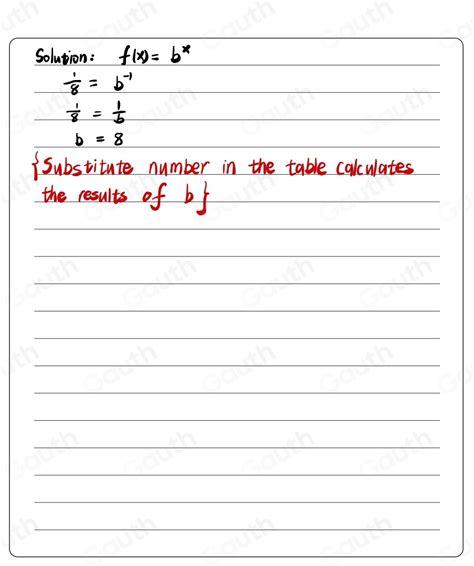 Solution: f(x) = b^x
1/8 = b^-1
1/8 = 1/b
b = 8
{Substitute number in the table calculates
the results of b}